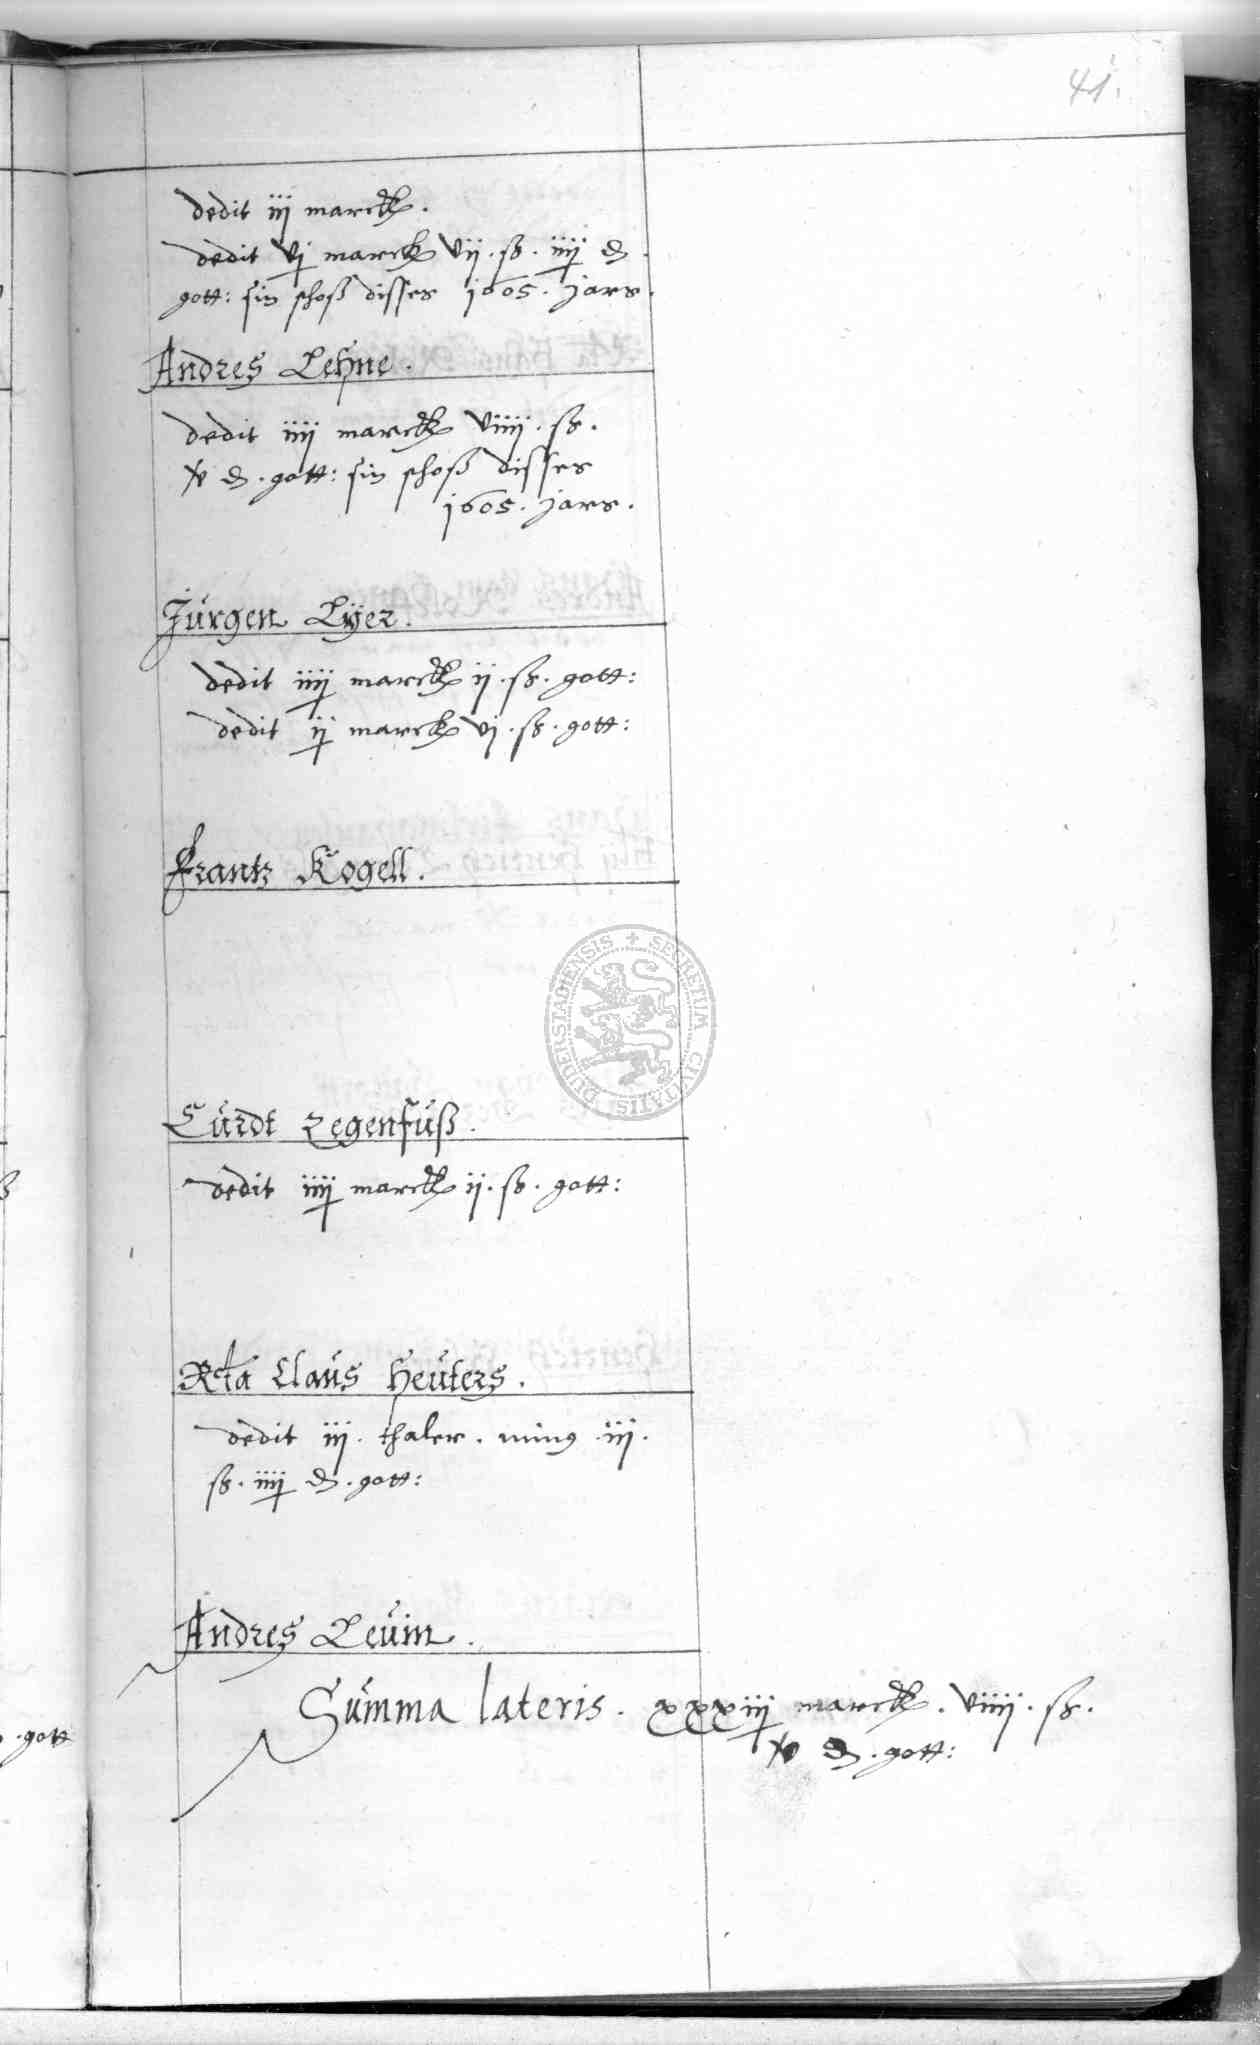 41.
dedit iij marck.
dedit vj marck vij. ß. iiij ₰.
gott: sin schoß disses 1605. jars.
Andres Lehne.
dedit iiij marck viiij. ß.
v ₰. gott: sin schoß disses
1605. jars.
Jürgen Lÿer.
dedit iiij marck ij. ß. gott:
dedit ij marck vj. ß. gott:
Frantz Kogell.
Curdt Regenfuß.
dedit iiij marck ij. ß. gott:
Rta Claus Heuters.
dedit iij. thaler. minus iij.
ß. iiij ₰. gott:
Andres Leuin.
Summa lateris. xxxiij marck. viiij. ß.
v ₰. gott:
. gott
SECRETUM CIVITATIS DUDERSTADIENSIS